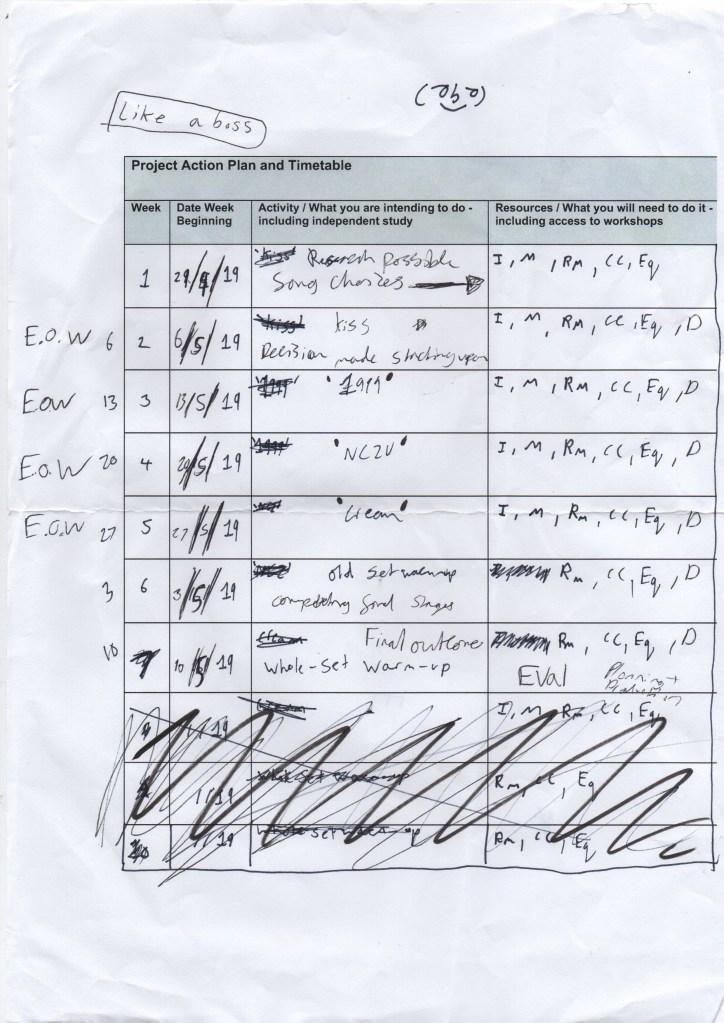 Like a boss
Project Action Plan and Timetable
Week
Date Week Beginning
Activity / What you are intending to do - including independent study
Resources / What you will need to do it - including access to workshops
1 29/4/19 Research possible I, M, Rm, CC, Eq
Song Choices
E.O.W 6 2 6/5/19 kiss I, M, Rm, CC, Eq, D
Decision made upon
EOW 13 3 13/5/19 '1999' I, M, Rm, CC, Eq, D
E.O.W 20 4 20/5/19 'NC2U' I, M, Rm, CC, Eq, D
E.O.W 27 5 27/5/19 'Cream' I, M, Rm, CC, Eq, D
3 6 3/5/19 old set warmup Rm, CC, Eq, D
stages
10 10/5/19 Final outcome Rm, CC, Eq, D
whole-set warm-up EVal Planning +
/19 I, M, Rm, CC, Eq
/ /19 Rm, CC, Eq
/19 Rm, CC, Eq